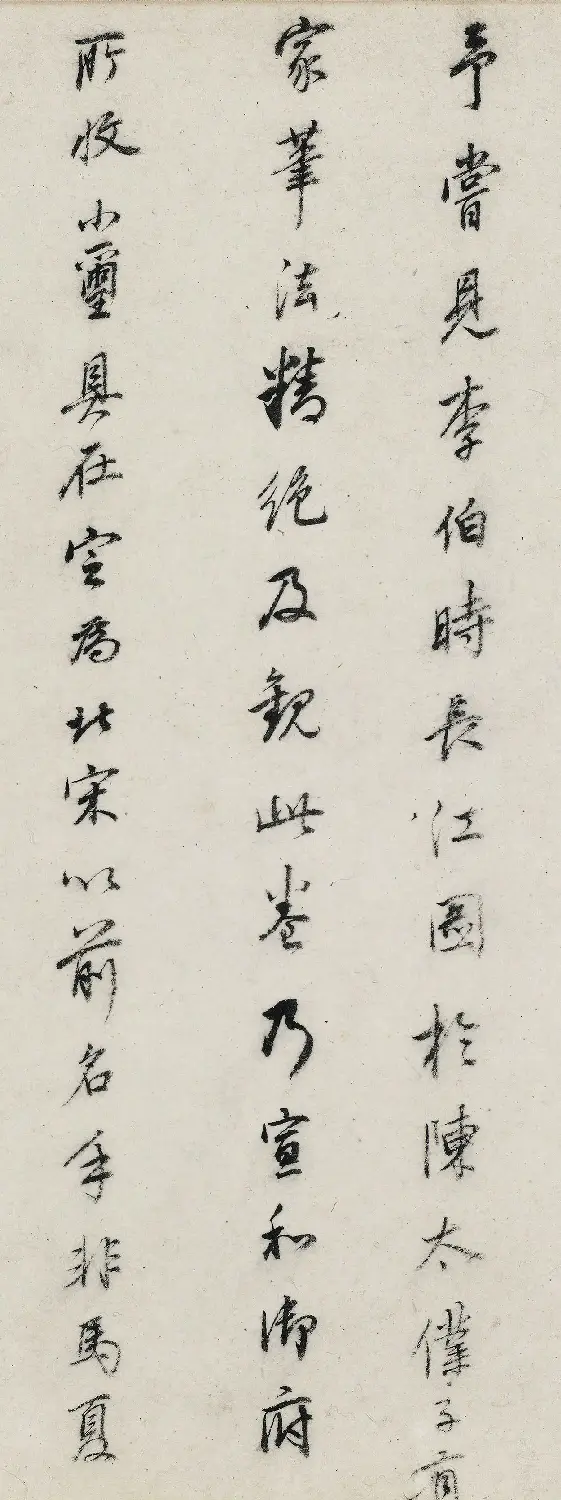 予嘗見李伯時長江圖於陳太僕子有
家筆法精絕及觀此卷乃宣和御府
所收小璽具在定爲北宋以前名手非馬夏